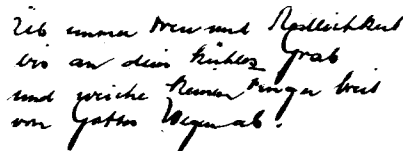 Üb immer Treu und Redlichkeit
bis an dein kühles Grab
und weiche keinen Finger breit
von Gottes Wegen ab.